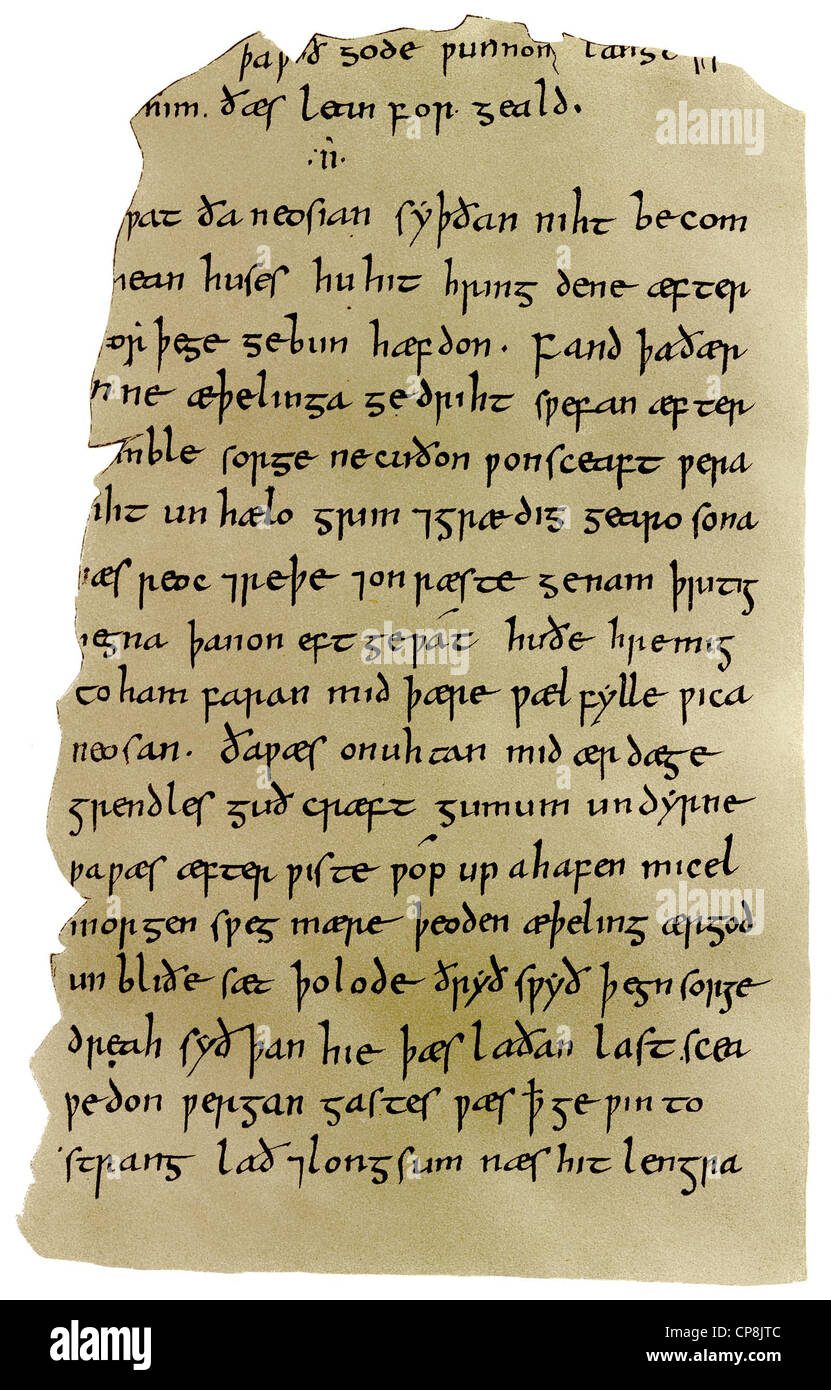 þaƿið gode ƿunnon lange
him. ðæs lean for geald.
.ii.
ƿat ða neosian sẏþðan niht becom
hean huses huhit hring dene æfter
eor þege gebun hæfdon. Fand þaðær
inne æþelinga gedriht sƿefan æfter
mble sorge necuðon ƿonsceaft ƿera
iht un hælo grim ⁊grædig gearo sona
ƿæs reoc ⁊reþe ⁊onræste genam þritig
egna þanon eft geƿát huðe hremig
to ham faran mid þære ƿæl fẏlle ƿica
neosan. ðaƿæs onuhtan mid ærdæge
grendles guð cræft gumum undẏrne
þaƿæs æfter ƿiste ƿóp up ahafen micel
morgen sƿeg mære þeoden æþeling ærgod
un bliðe sæt þolode ðrẏð sƿẏð þegn sorge
dreah sẏð þan hie þæs laðan last scea
ƿedon ƿergan gastes ƿæs ꝥ geƿin to
strang lað ⁊longsum næs hit lengra
alamy
alamy
Image ID: CP8JTC
www.alamy.com